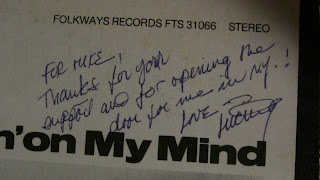 FOLKWAYS RECORDS FTS 31066 STEREO
FOR
Thanks for your
support and for opening the
door for me in NY.!
LOVE
n' on My Mind